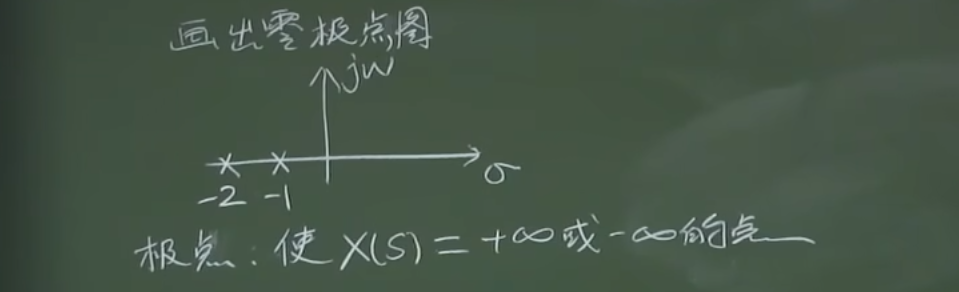 画出零极点图
jω
σ
-2 -1
极点：使X(S)=+∞或-∞的点